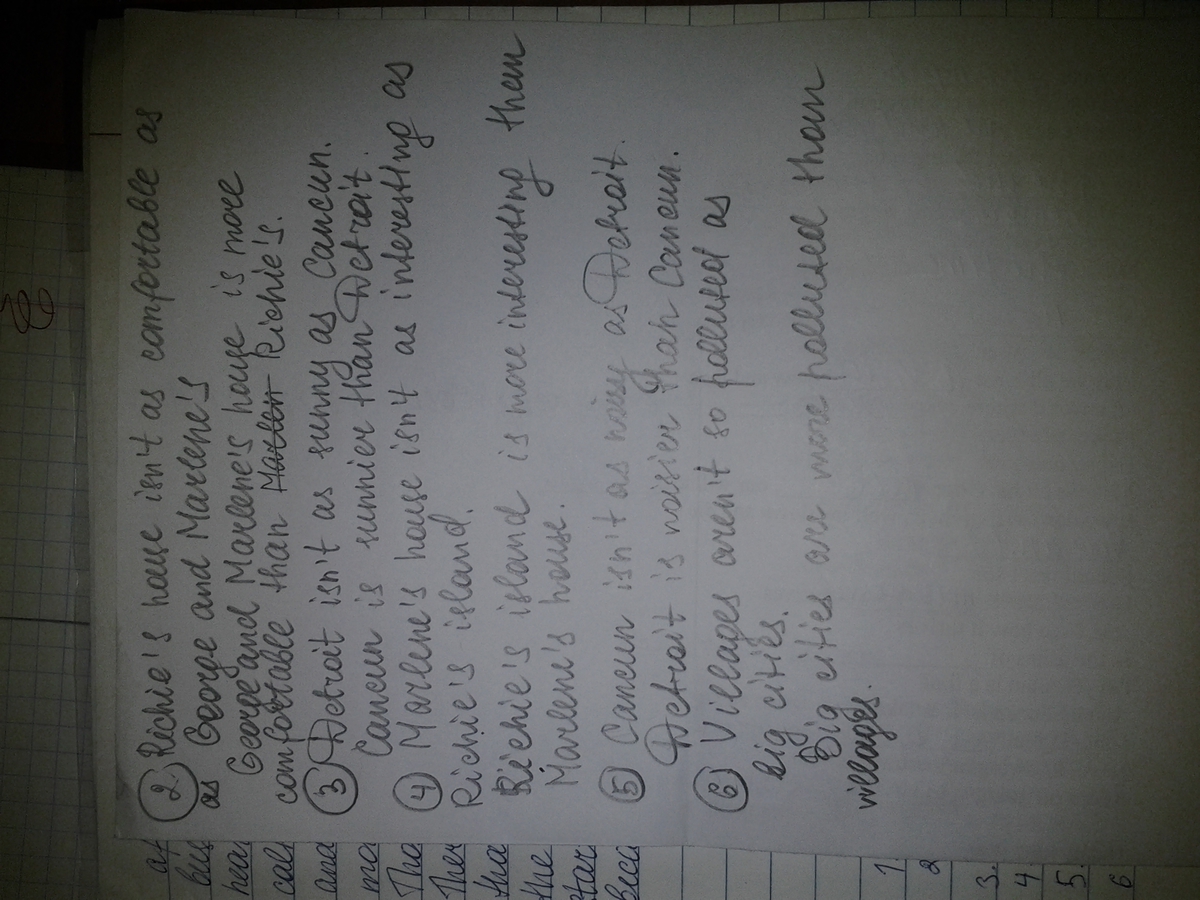 2. Richie's house isn't as comfortable as
as George and Marlene's
George and Marlene's house is more
comfortable than Marlen Richie's.
3 Detroit isn't as sunny as Cancun.
Cancun is sunnier than Detroit.
4 Marlene's house isn't as interesting as
Richie's island.
Richie's island is more interesting them
Marlene's house.
5 Cancun isn't as noisy as Detroit.
Detroit is noisier than Cancun.
6 Villages aren't so polluted as
big cities.
Big cities are more polluted than
villages.
the
1.
2
3.
4.
5.
6